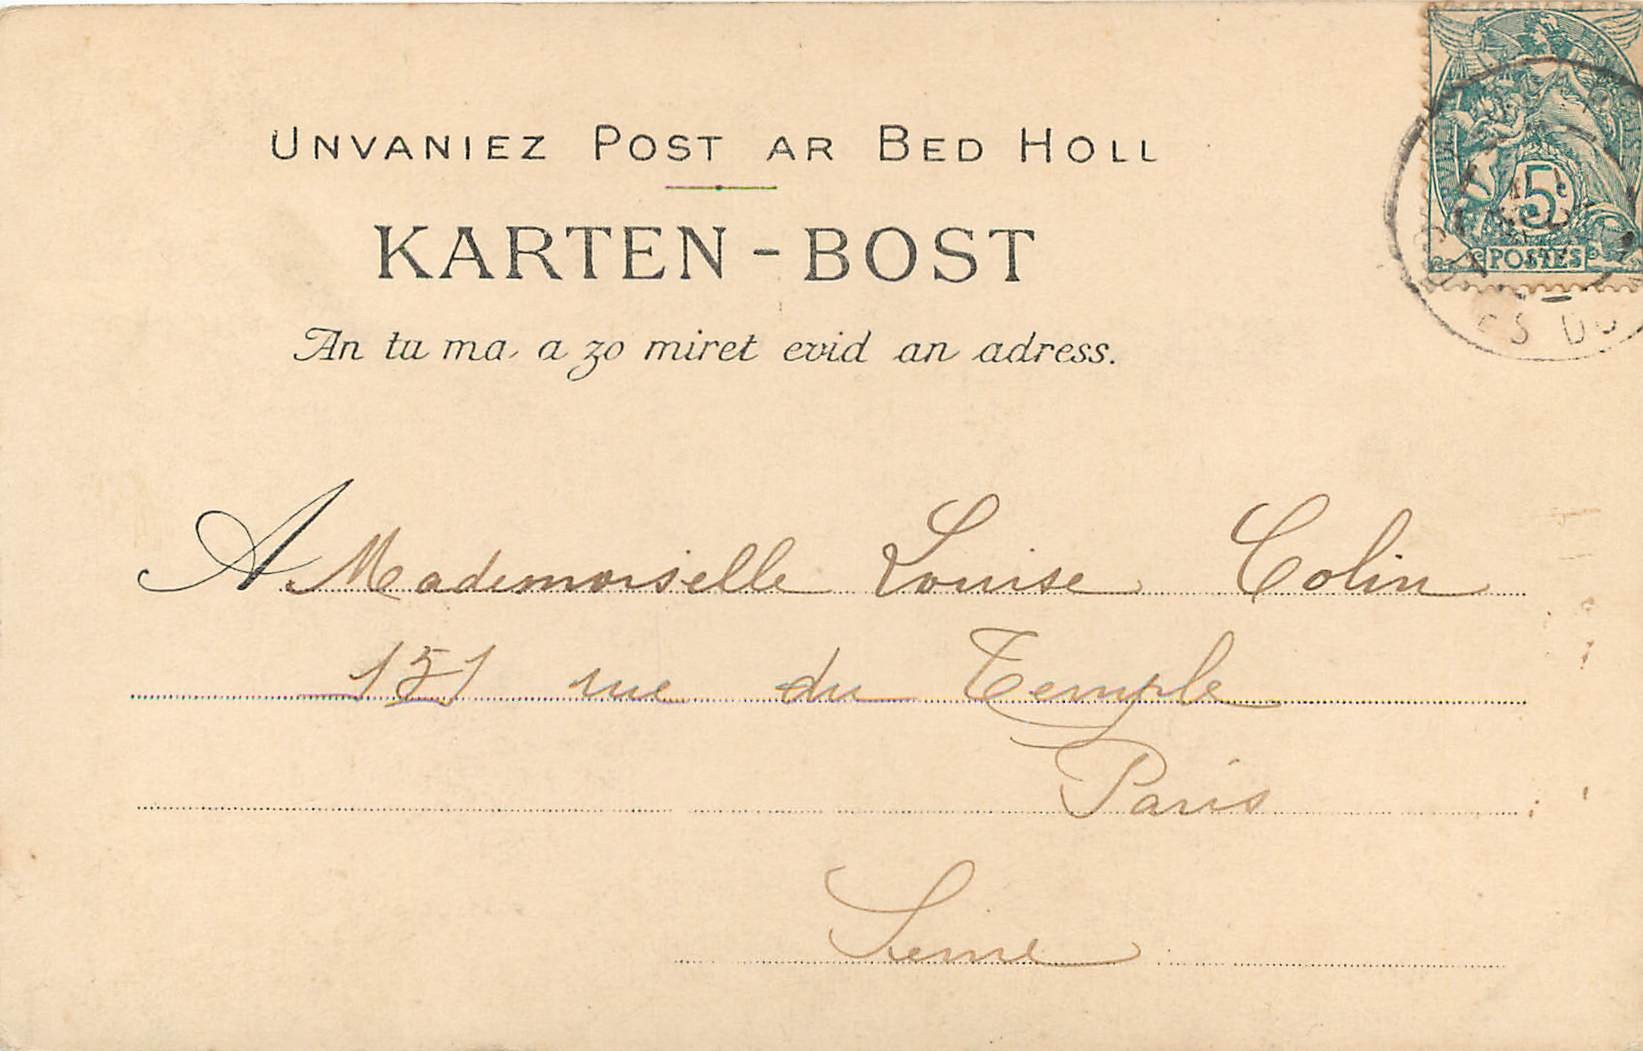 UNVANIEZ POST AR BED HOLL
KARTEN-BOST
An tu ma, a zo miret evid an adress.
A Mademoiselle Louise Colin
151 rue du Temple
Paris
Seine
5
POSTES